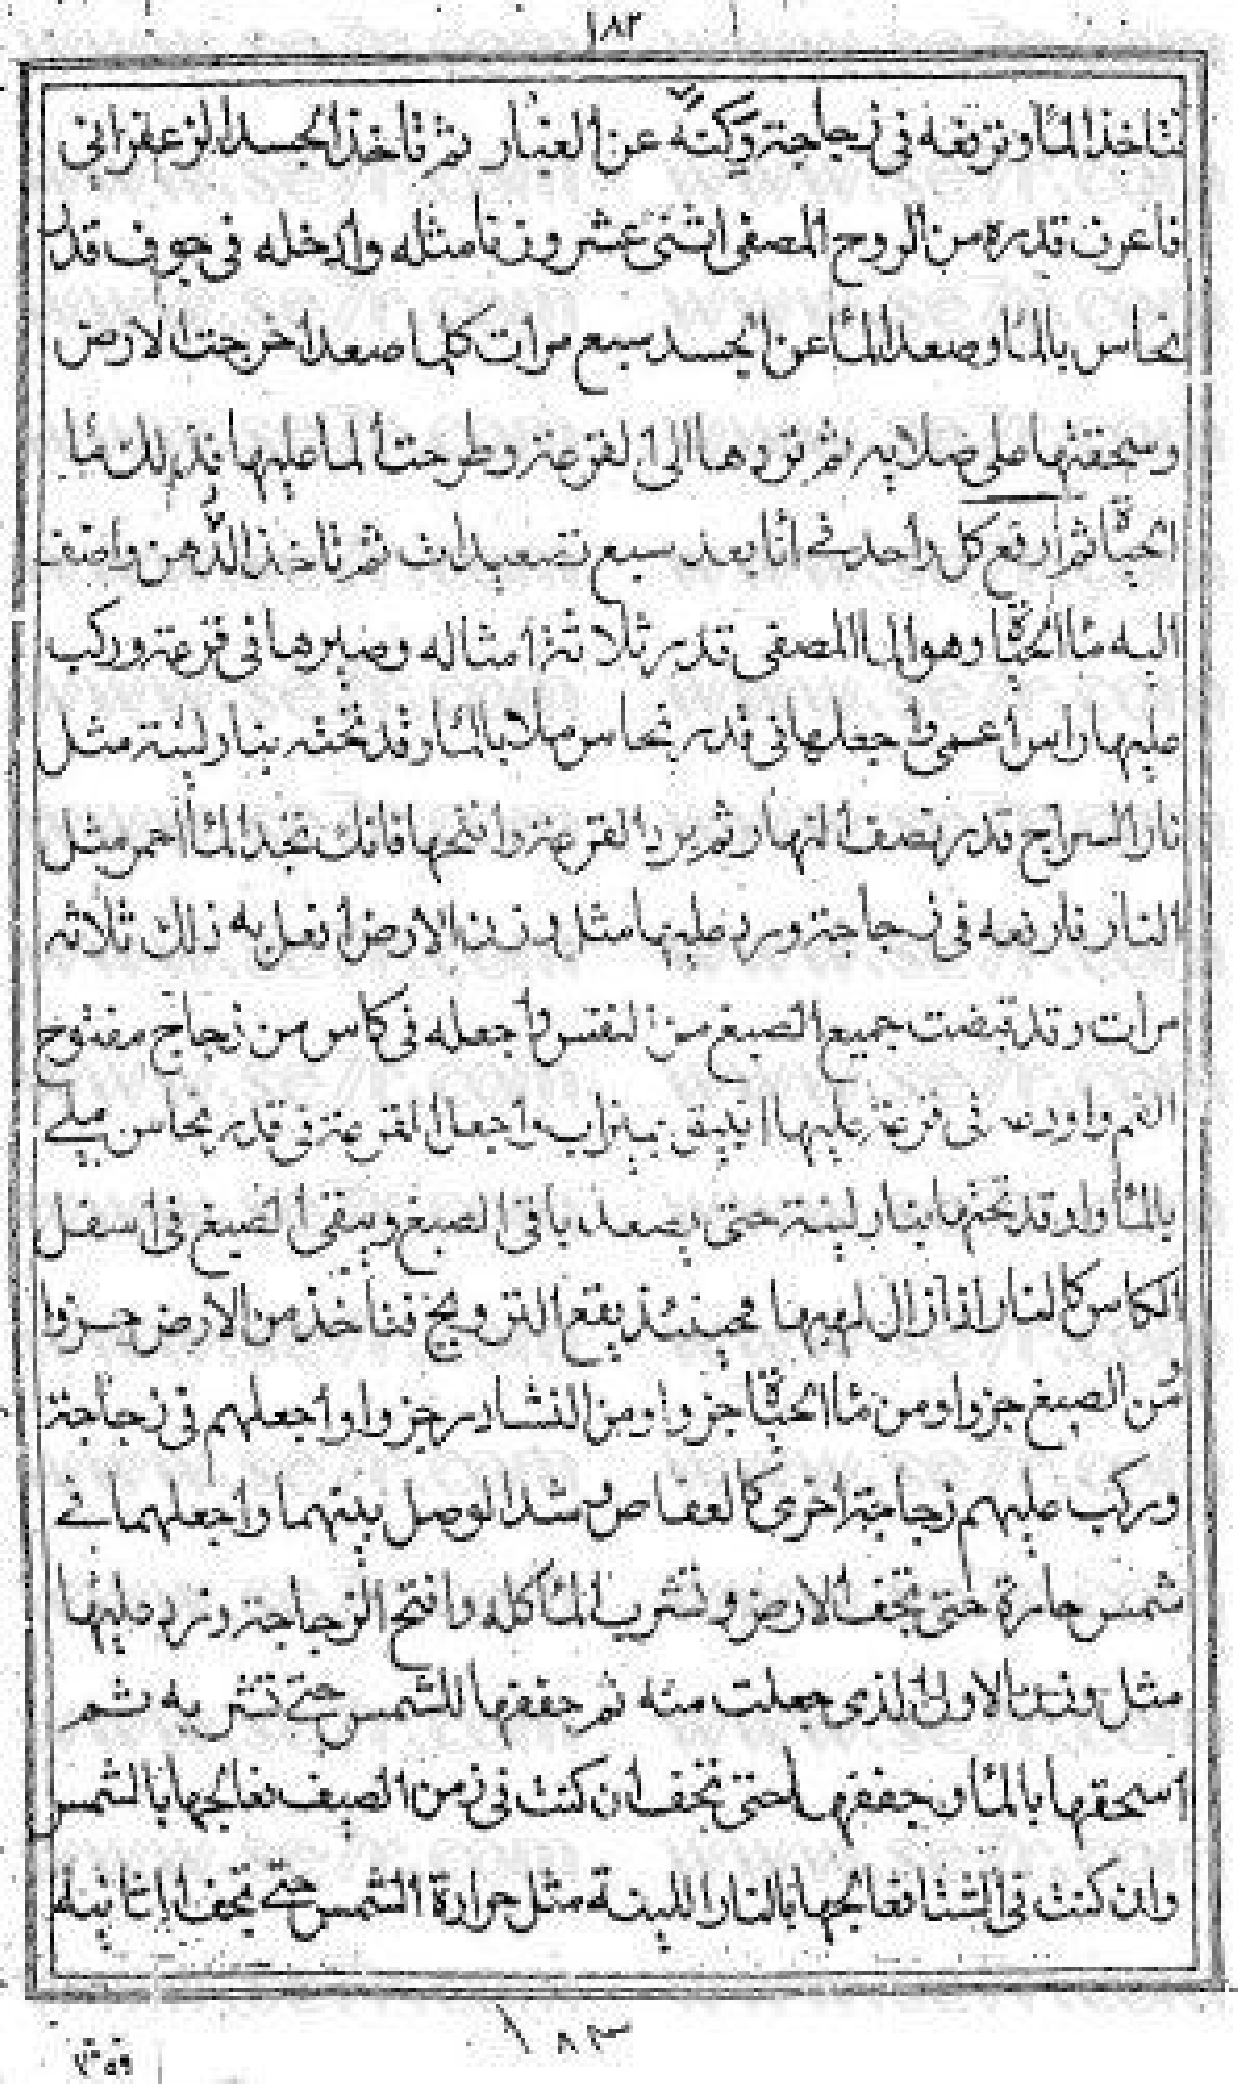 ١٨٣
فتاخذ الما وترفعه في زجاجة وكنه عن الغبار ثم تاخذ الجسد الزعفراني
فاعرف قدره من الروح المصفى اثنى عشر وزنا مثله وادخله في جوف قدر
نحاس بالما وصعد الما عن الجسد سبع مرات كلما صعد اخرجت الارض
وسحقتها على صلايه ثم تردها الى القرعة وطرحت الما عليها فذلك ما
الحياة ثم ارفع كل واحد في انا بعد سبع تصعيدات ثم تاخذ الدهن واضف
اليه ما الحياة وهو الما المصفى قدر ثلاثة امثاله وصيرها في قرعة وركب
عليها راس اعمى واجعلها في قدر نحاس ملا بالما وقد تحته بنار لينة مثل
نار السراج قدر نصف النهار ثم برد القرعة وافتحها فانك تجد الما احمر مثل
النار فارفعه في زجاجة ورد عليها مثل وزن الارض افعل به ذلك ثلاثه
مرات وقد قبضت جميع الصبغ من النفس واجعله في كاس من زجاج مفتوح
الفم واودعه في قرعة عليها انبيق بميزاب واجعل القرعة في قدر نحاس ملى
بالما واوقد تحتها بنار لينة حتى يصعد باقى الصبغ ويبقى الصبغ في اسفل
الكاس كالنار اذا زال لهيبها فحينئذ يقع التزويج فتاخذ من الارض جزوا
من الصبغ جزوا ومن ما الحياة جزوا ومن النشادر جزوا واجعلهم في زجاجة
وركب عليهم زجاجة اخرى كالعفاص وشد الوصل بينهما واجعلهما في
شمس حارة حتى تجف الارض وتشرب الما كله وافتح الزجاجة وزد عليها
مثل وزن الاول الذى جعلت منه ثم جففها للشمس حتى تشربه ثم
اسحقها بالما وجففها حتى تجف ان كنت في زمن الصيف فعالجها بالشمس
وان كنت في الشتا فعالجها بالنار اللينة مثل حرارة الشمس حتى تجف ثانية
١٨٣